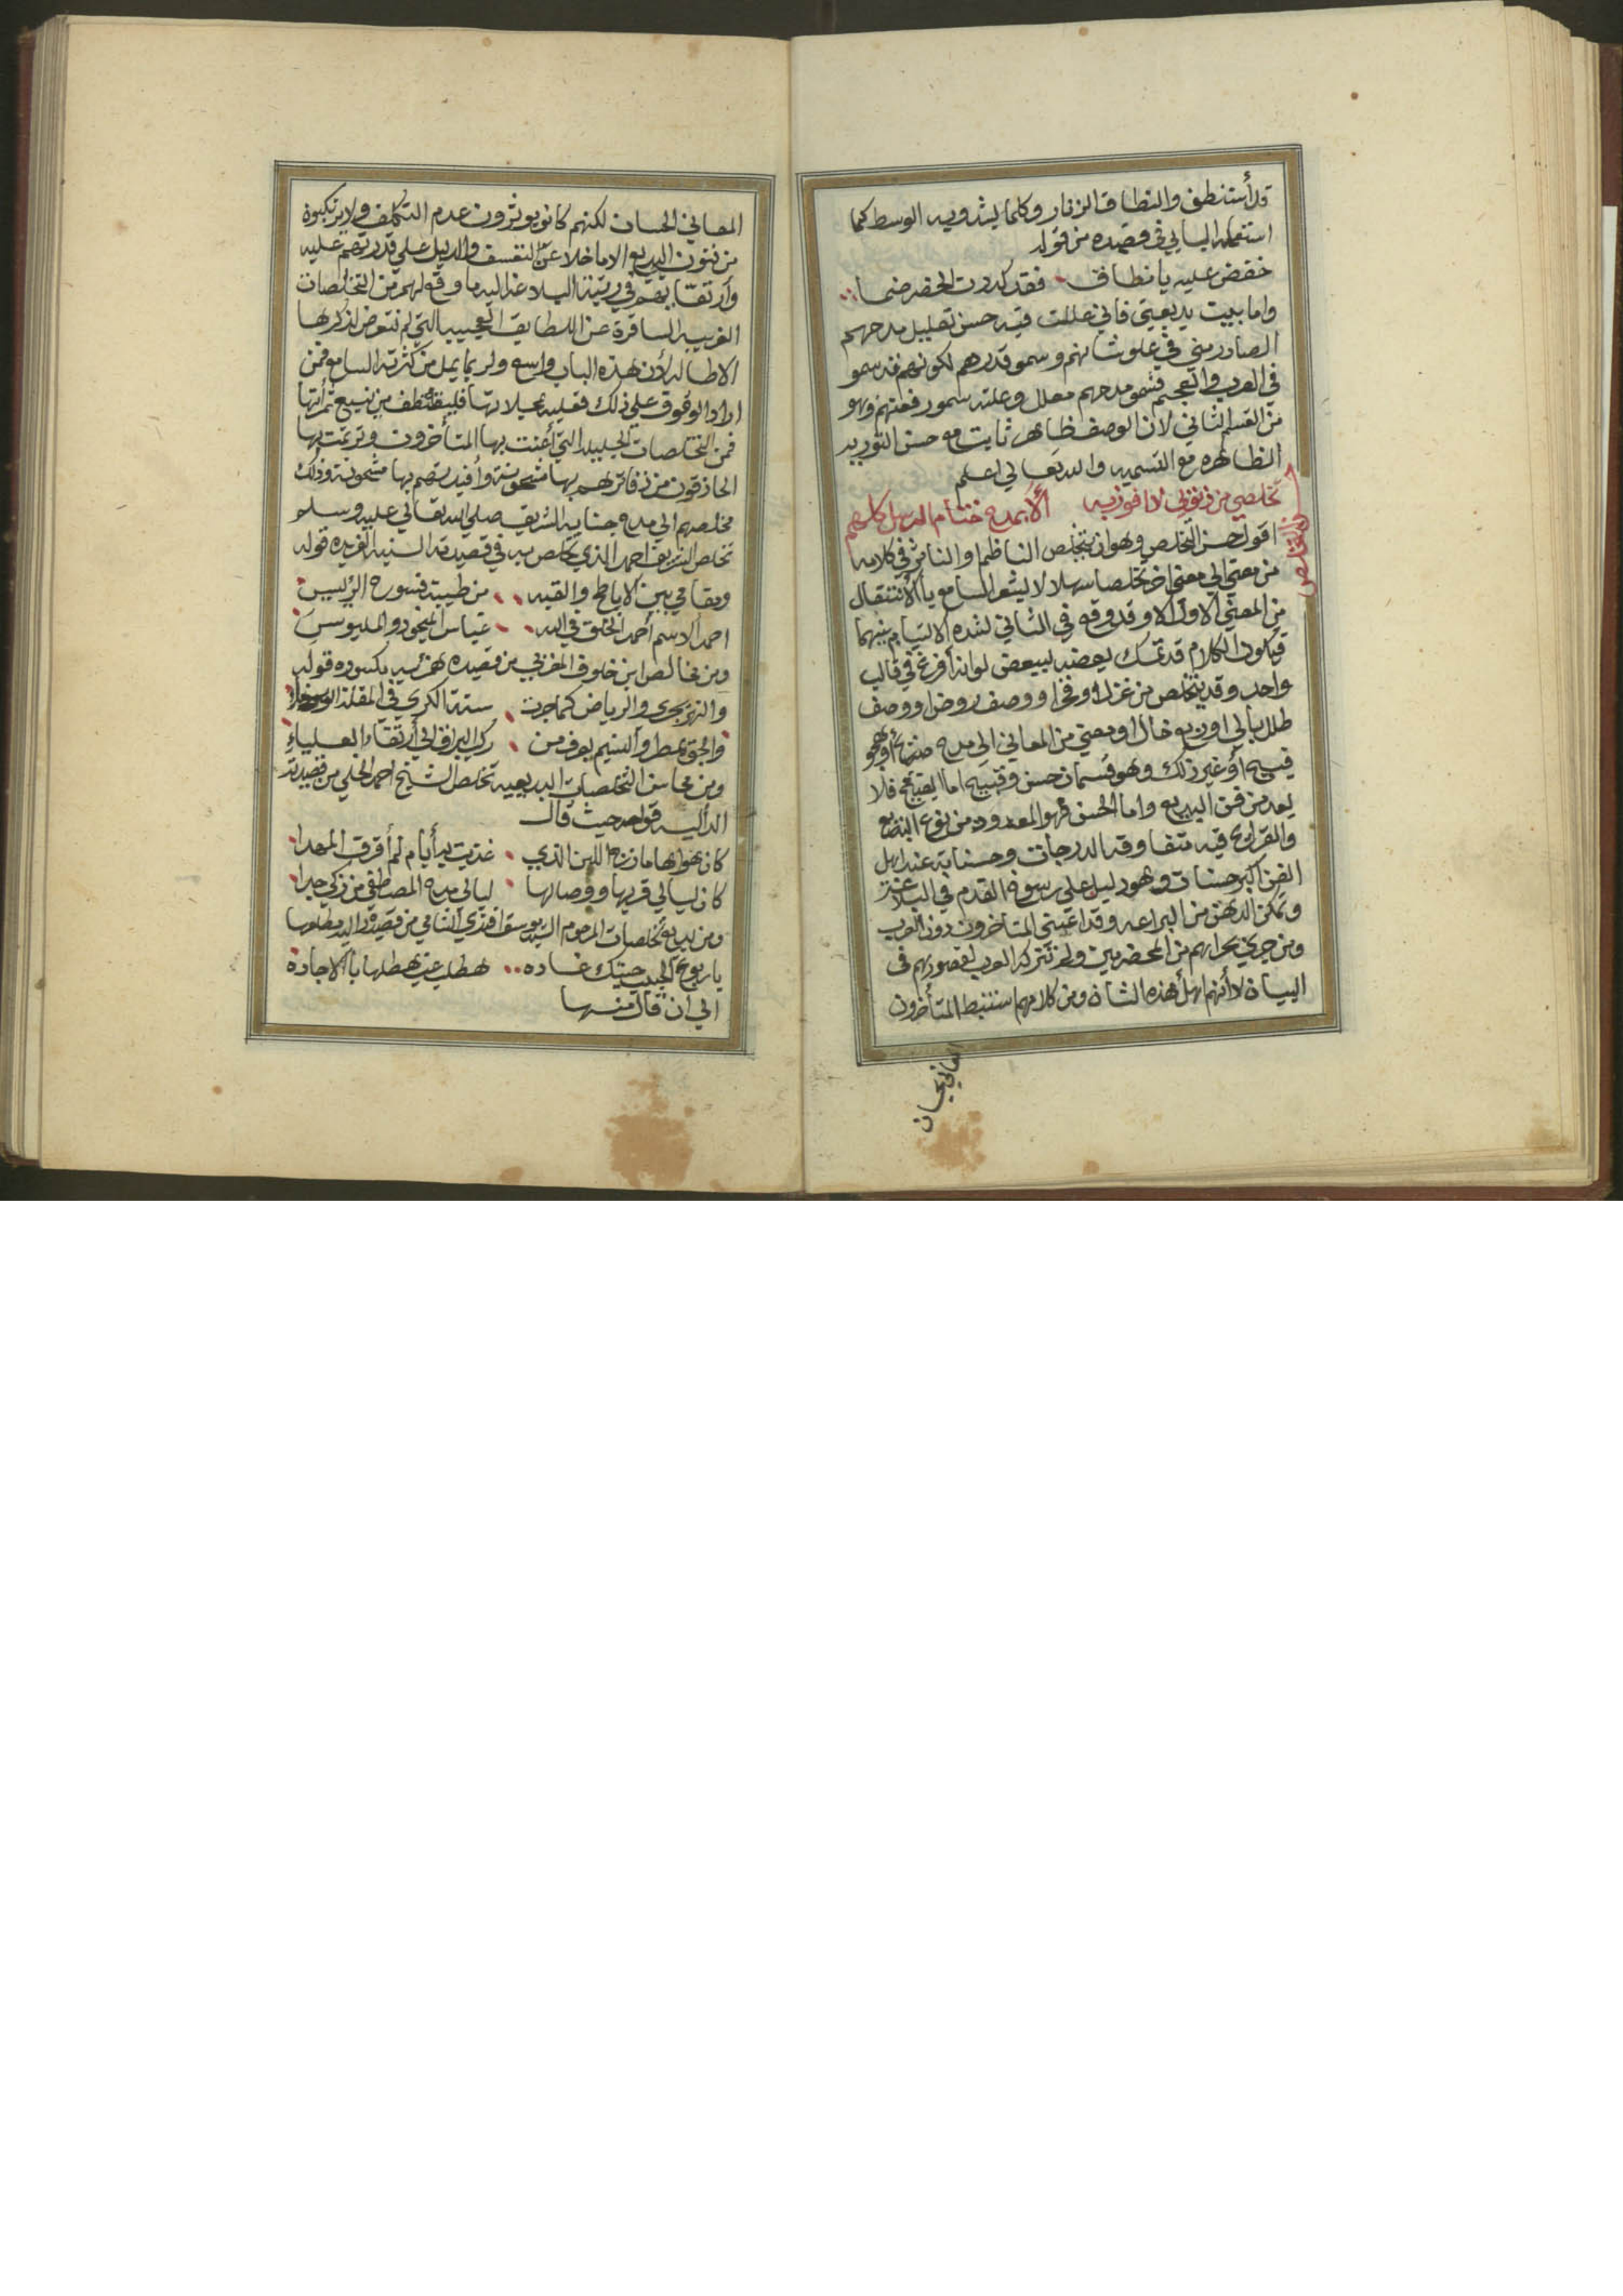 قد أستنطق والنطاق الزنار وكلما يشدويه الوسط كما
استعمله البابي في قصيده من قوله
خفض عليه يا نطاق فقد كدرت الخضر ضما
واما بيت بديعيتي فاني عللت فيه حسن تعليل مدحهم
الصادر مني في علو شانهم وسمو قدرهم لكونهم قد سمو
في العرب والعجم فسمو مدحهم معلل وعلته سمو رفعتهم وهو
من القسم الثاني لان الوصف ظاهر ثابت مع حسن التوريه
الظاهره مع التسميه والله تعالي اعلم
حسن التخلص
تخلصي من ذنوبي لا افوز به الا بمدح ختام الرسل كلهم
اقول حسن التخلص وهو ان يتخلص الناظم او الناثر في كلامه
من معني الي معني اخر تخلصا سهلا لا يشعر السامع بالانتقال
من المعني الاول الا وقد وقع في الثاني لشده الالتيام بينهما
فيكون الكلام قد تمسك بعضه ببعض لو انه أفرغ في قالب
واحد وقد يتخلص من غزل او فخر او وصف روض او وصف
طلل بالي او ربع خال او معني من المعاني الي مدح أو هجو
فسيح أو غير ذلك وهو قسمان حسن وقبيح اما القبيح فلا
يعد من فن البديع واما الحسن فهو المعدود من نوع البديع
والقرايح فيه متفاوته الدرجات وحسناته عند اهل
الفن اكبر حسنات وهو دليل علي رسوخ القدم في البلاغة
وتمكن الذهن من البراعه وقد اعتني المتأخرون دون العرب
ومن جري مجراهم من المخضرمين ولم تتركه العرب لقصورهم في
البيان لا أنهم اهل هذه الشان ومن كلامهم استنبط المتأخرون
المعاني الحسان
المعاني الحسان لكنهم كانو يوثرون عدم التكلف ولا يرتكبوة
من فنون البديع الا ما خلا عن التعسف والدليل علي قدرتهم عليه
وارتقايهم في رتبة البلاغة اليه ما وقع لهم من التخلصات
الغريبه السافرة عن اللطايف العجيبه التي لم نتعرض لذكرها
الاطاله لأن هذه الباب واسع ولربما يمل من كثرته السامع فمن
اراد الوقوف علي ذلك فعليه بمحلاتها فليقتطف من ينيع ثمراتها
فمن التخلصات الجليله التي أعتنت بها المتأخرون وترنمت بها
الحاذقون من ذفاترهم بها مشحونة وأفيدتهم بها مشحونة وذلك
مخلصهم الي مدح جنابه الشريف صلي الله تعالي عليه وسلم
تخلص الشريف احمد الذي تخلص به في قصيدته السنيه الفريده قوله
وبقا في بين الاباطح والقبه من طيبة فسوح الريس
احمد الاسم أحمد الخلق في الله غياس المنجود والمليوس
ومن مخالص ابن خلوف المغربي من قصيده همزيه مكسوره قوله
والنهر يجري والرياض كما جرت سنة الكري في المقلة
والجو يمطر والنسيم يعرف من ركب البراق الي أرتقاء العلياء
ومن محاسن التخلصات البديعيه تخلص الشيخ احمد الخلي من قصيدته
الداليه قوله حيث قال
كان هواها مازج اللبن الذي غذيت به أيام لم أفرق المهدا
كان ليالي قربها ووصالها ليالي مدح المصطفي من زكي جدا
ومن بديع تخلصات المرحوم السيد يوسف افندي الشامي من قصيدة داليه مطلعها
يا ربوع الحبيب حيتك غاده هطلت عن هطلها بالاجادة
الي ان قال منها